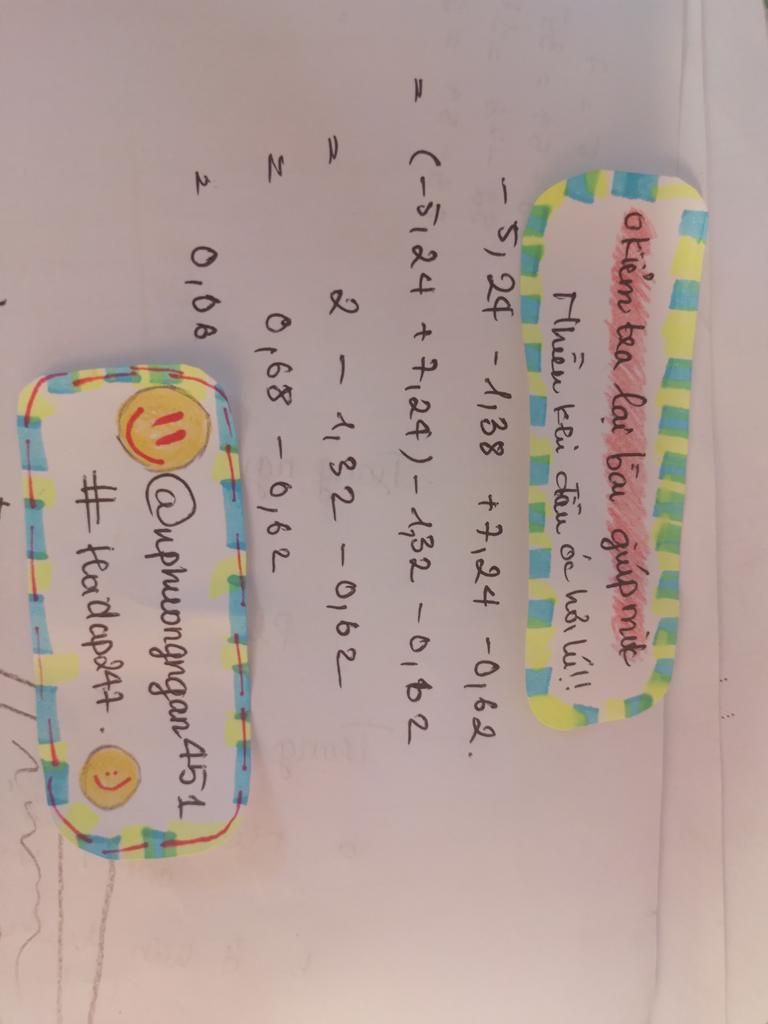 Kiểm tra lại bài giúp mik
Nhiều khi đầu óc hơi lú!!
- 5,24 - 1,38 + 7,24 - 0,62.
= (-5,24 + 7,24) - 1,32 - 0,62
= 2 - 1,32 - 0,62
= 0,68 - 0,62
= 0,06
@nphuongngan451
#Hoidap247.